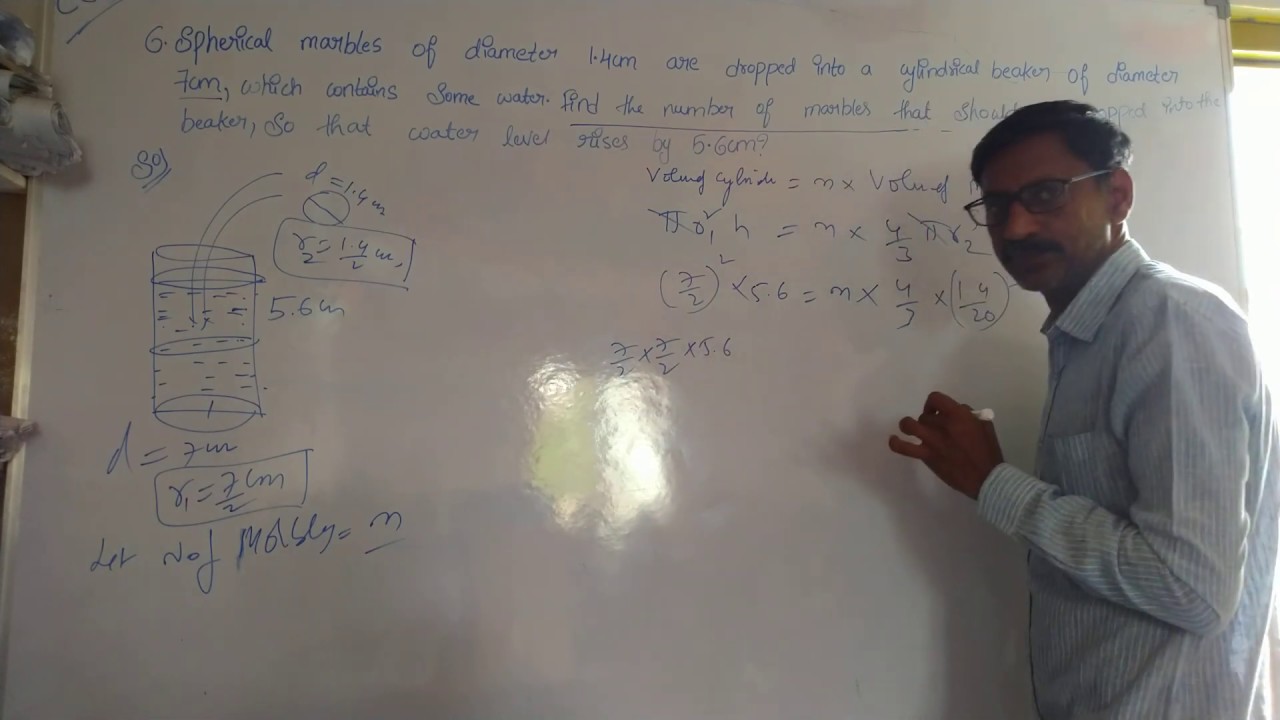 6. Spherical marbles of diameter 1.4cm are dropped into a cylindrical beaker of diameter
7cm, which contains some water. find the number of marbles that shoul into the
beaker, so that water level rises by 5.6cm?
Sol)
d = 1.4cm
r2 = 1.4/2 cm,
5.6cm
d = 7cm
r₁ = 7/2 cm
Let No of Marbles = n
Volume of cylinder = n × Volume of
πr₁² h = n × 4/3 πr₂
(7/2)² × 5.6 = n × 4/3 × (14/20)
7/2 × 7/2 × 5.6